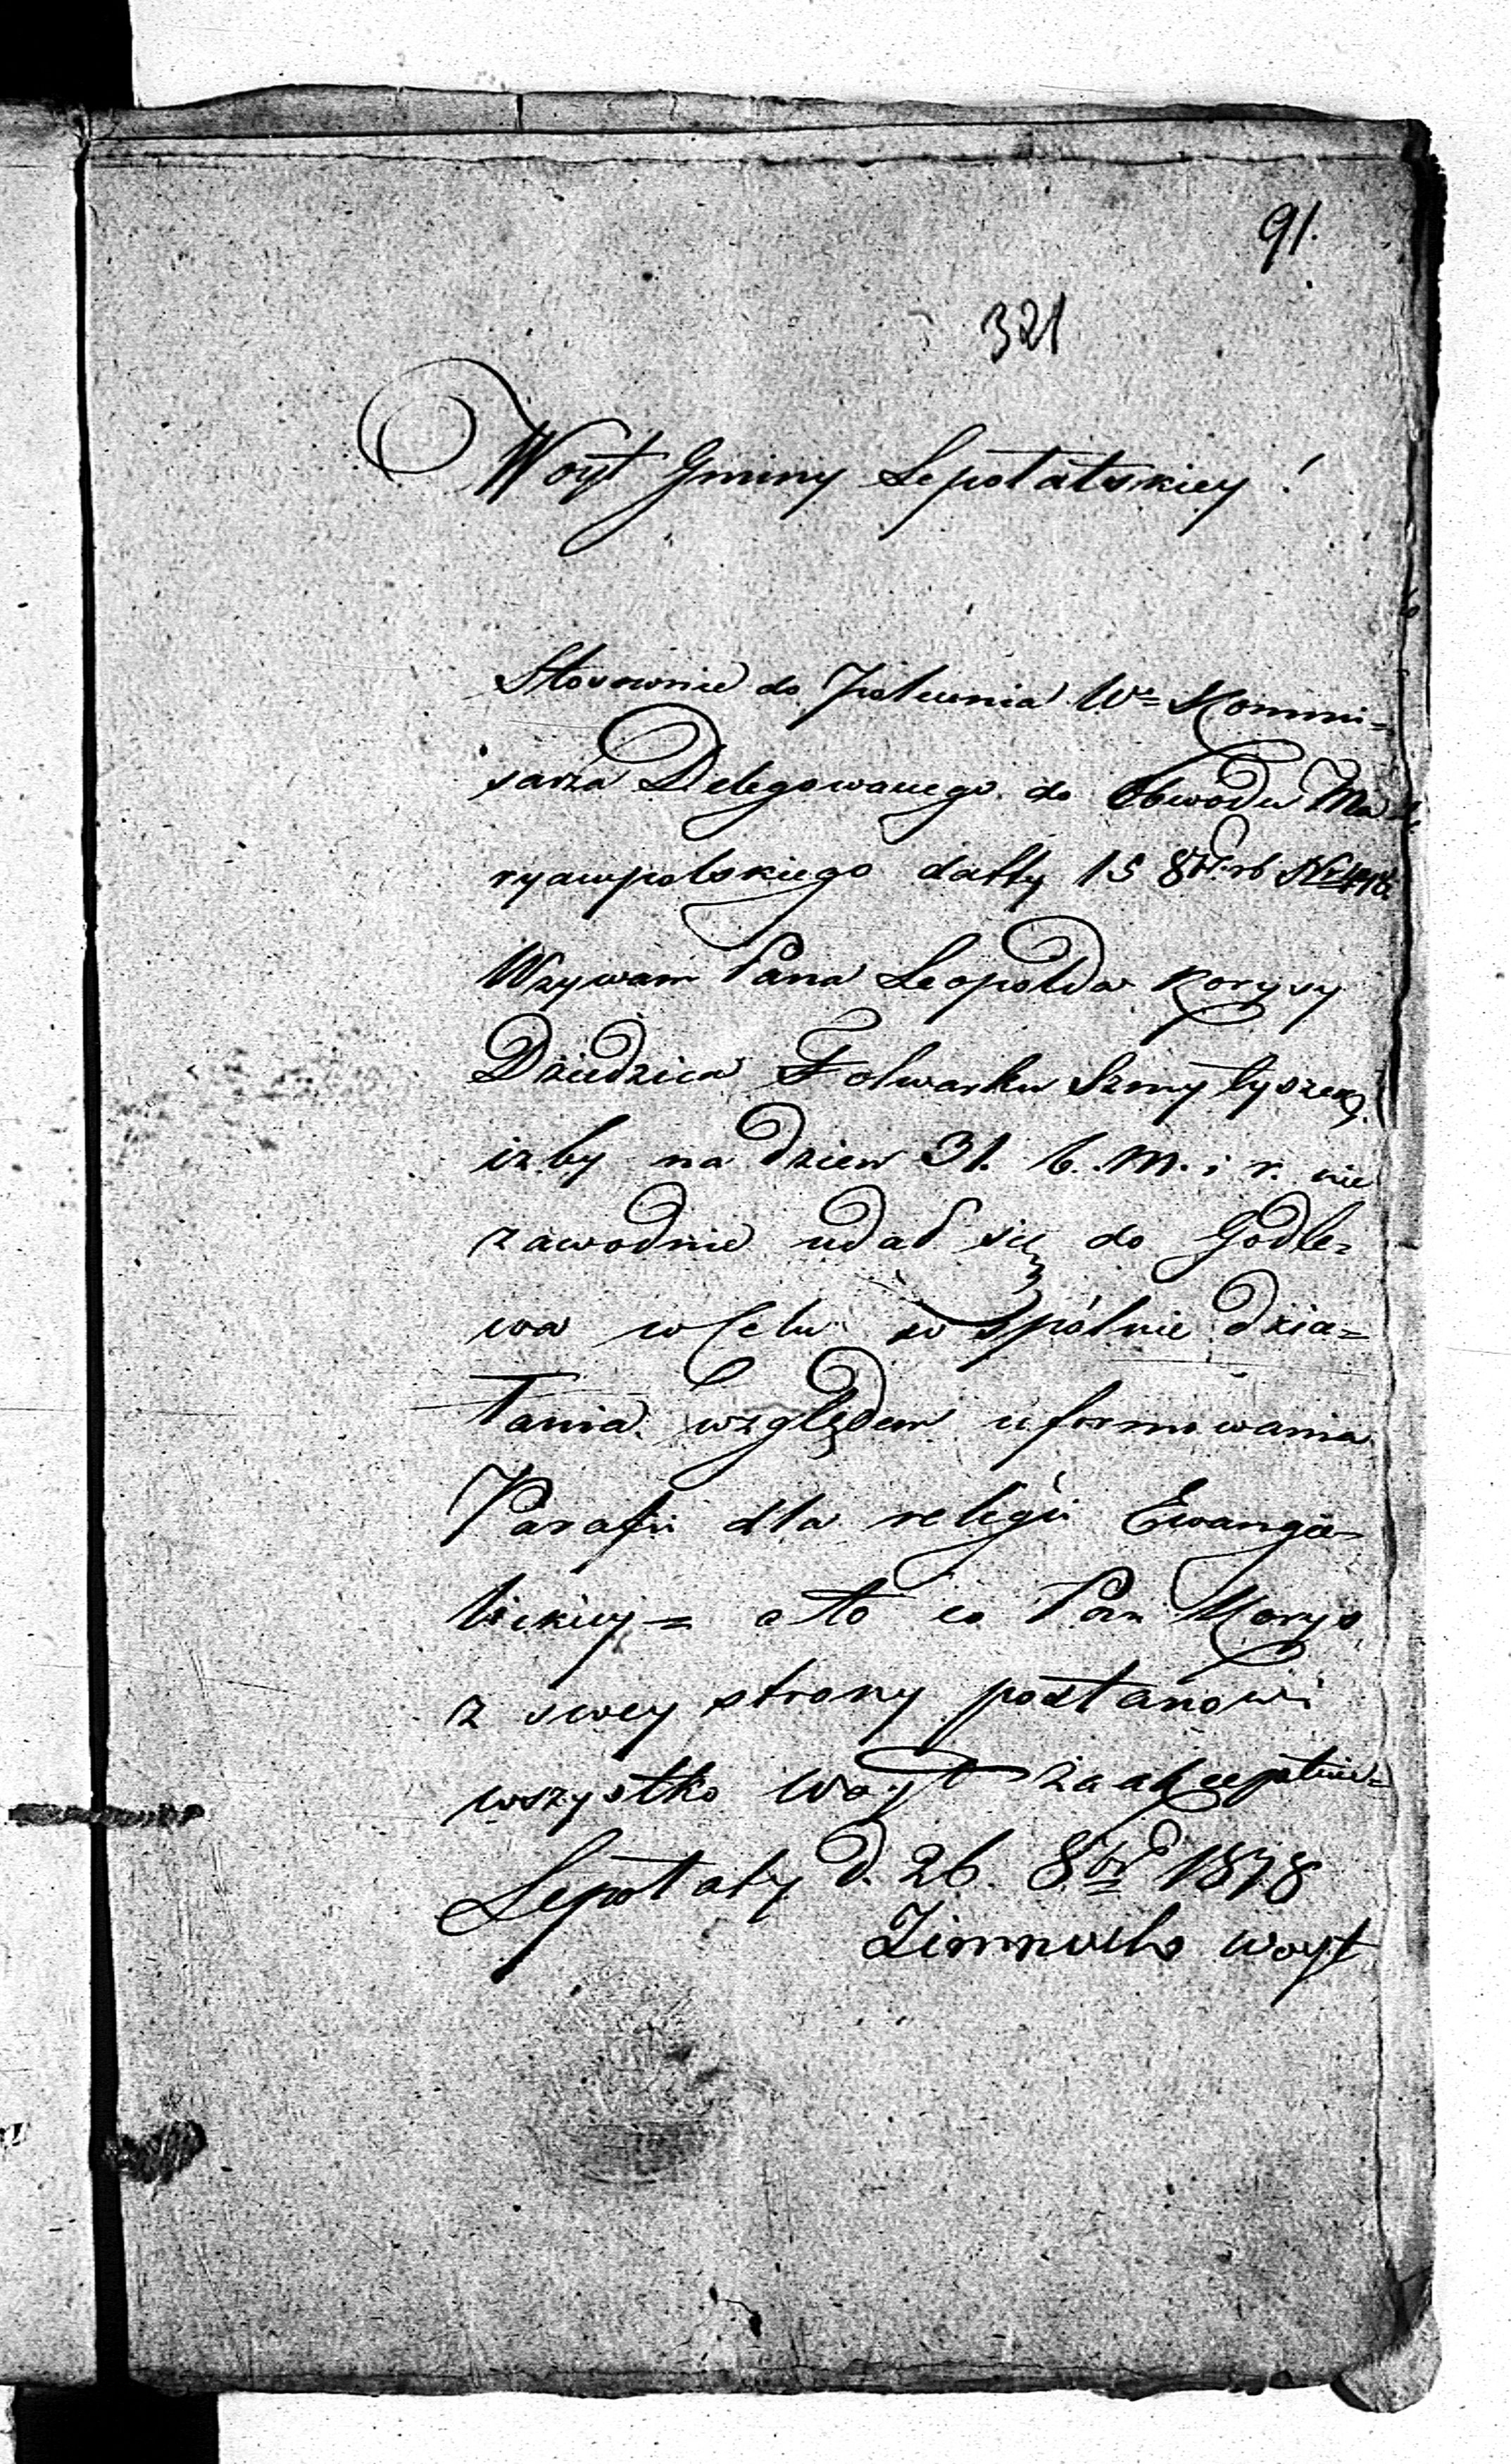 91.
321
Woyt Gminy Lepołatskiey!
Stosownie do Zalecenia W° Kommi=
sarza Delegowanego do Obwodu Ma
ryampolskiego datty 15 8bra rb
Wzywam Pana Leopolda Korysy
Dziedzica Folwarku Szmytyszek
izby na dzien 31. b. m. i r. nie
zawodnie udał się do Godle=
wa w Celu w spólnie dzia=
łania względem uformowania
Parafii dla religii Ewangie=
lickiey = a to co Pan Korys
z swey strony postanowi
wszystko Woyt zaakceptuie=
Lepołaty d. 26. 8bra 1818
Zimnoch woyt